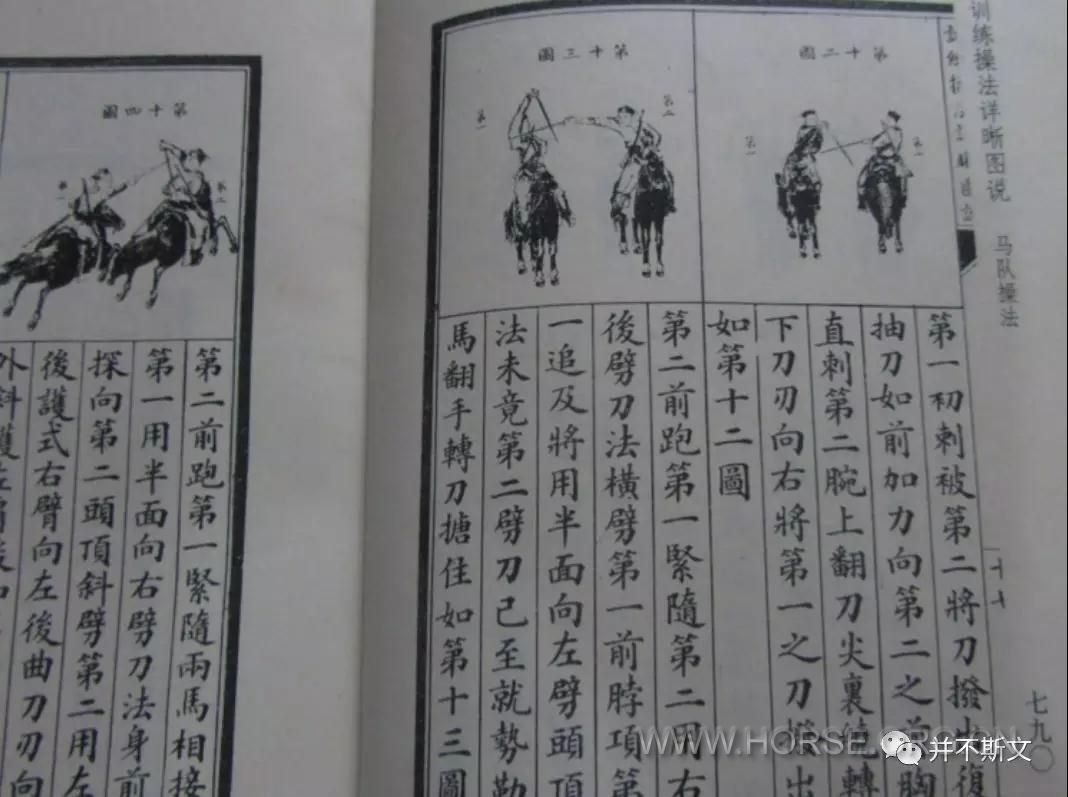 训练操法详晰图说
马队操法
七九〇
第十二圖
第一
第十三圖
第二
第一
第一初刺被第二將刀撥
抽刀如前加力向第二之
直刺第二腕上翻刀尖裏
下刀刃向右將第一之刀
如第十二圖
第二前跑第一緊隨第二用右
後劈刀法橫劈第一前脖項第
一追及將用半面向左劈頭頂
法未竟第二劈刀已至就勢勒
馬翻手轉刀搪住如第十三圖
第十四圖
第二
第一
第二前跑第一緊隨兩馬相接
第一用半面向右劈刀法身前
探向第二頭頂斜劈第二用左
後護式右臂向左後曲刀刃向
外斜護左
WWW.HORSE.ORG
并不斯文